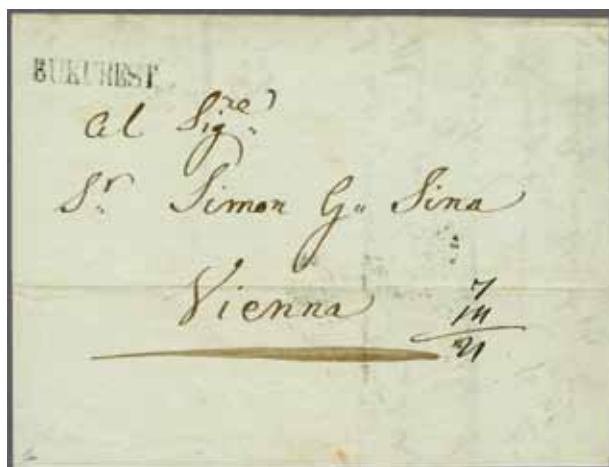 BUKUREST
Al Sig.re
S.r Simon G. Sina
Vienna
7
14
21